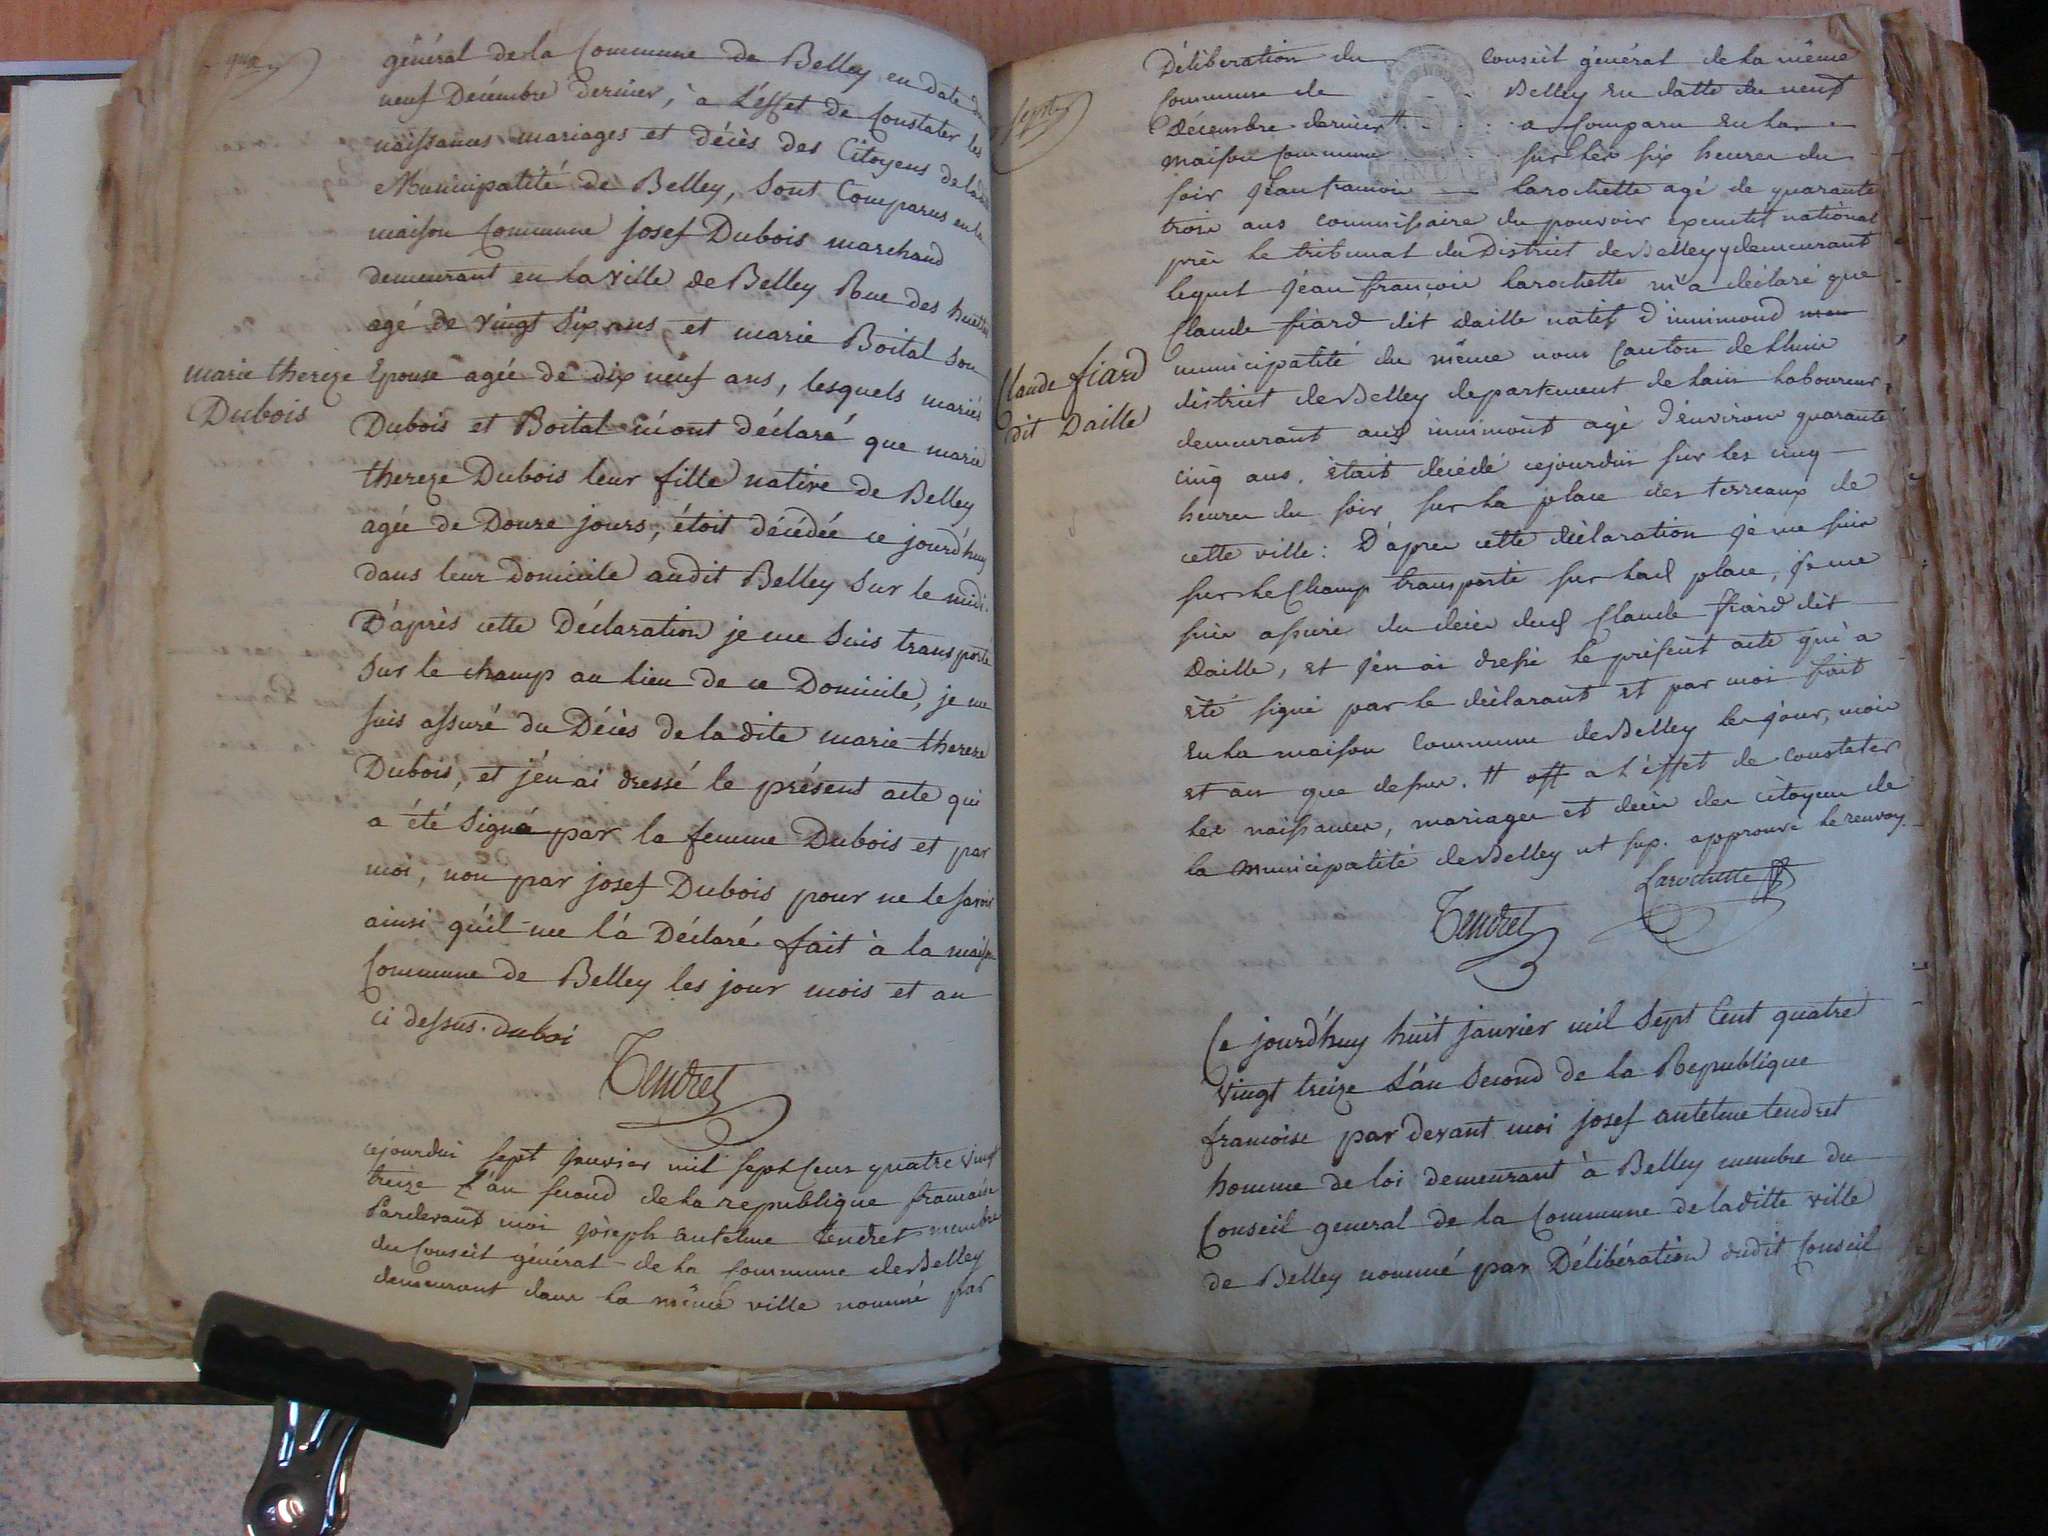 général de la Commune de Belley en date du
neuf Décembre dernier, à L'effet de Constater les
naissances mariages et décès des Citoyens de ladite
Municipalité de Belley, sont Comparus en la
maison Commune josef Dubois marchand
demeurant en la ville de Belley Rue des
agé de vingt six ans et marie Boital son
marie thereze
Dubois
Epouse agée de dix neuf ans, lesquels mariés
Dubois et Boital m'ont déclaré que marie
thereze Dubois leur fille native de Belley
agée de Douze jours, étoit décédée ce jourd'huy
dans leur Domicile audit Belley sur le midi.
D'après cette Déclaration je me suis transporté
sur le champ au lieu de ce Domicile, je me
suis assuré du Décès de la dite marie thereze
Dubois, et j'en ai dressé le présent acte qui
a été signé par la femme Dubois et par
moi, non par josef Dubois pour ne le savoir
ainsi qu'il me l'a Déclaré fait à la maison
Commune de Belley les jour mois et an
ci dessus. duboi
Tendret
cejourdui sept janvier mil sept Cens quatre vingt
treize L'an second de la republique francaise
Pardevant moi joseph antelme tendret membre
du Conseil général de la Commune de Belley
demeurant dans la même ville nommé par
Déliberation du Conseil général de la même
Commune de Belley en datte du neuf
Décembre dernier # a Comparu en la
maison Commune sur les six heures du
soir jean francois larochette agé de quarante
trois ans commissaire du pouvoir executif national
près le tribunal du District de Belley y demeurant
lequel jean francois larochette m'a déclaré que
Claude fiard dit Daille natif d'innimond
Claude fiard
dit Daille
municipalité du même nom Canton de Lhuis
district de Belley departement de lain laboureur
demeurant aud innimont agé d'environ quarante
cinq ans, était décédé cejourdui sur les cinq
heures du soir sur la place des terreaux de
cette ville: D'après cette déclaration je me suis
sur le Champ transporté sur lad place, je me
suis assuré du décès dud Claude fiard dit
Daille, et j'en ai dressé le présent acte qui a
été signé par le déclarant et par moi fait
en la maison Commune de Belley les jour, mois
et an que dessus. # a l'effet de constater
les naissances, mariages et décès des citoyens de
la municipalité de Belley ut sup. approuvé le renvoy.
Larochette
Tendret
Ce jourd'huy huit janvier mil sept Cent quatre
vingt treize L'an second de la Republique
francoise par devant moi josef antelme tendret
homme de loi demeurant à Belley membre du
Conseil general de la Commune de laditte ville
de Belley nommé par Délibération dudit Conseil